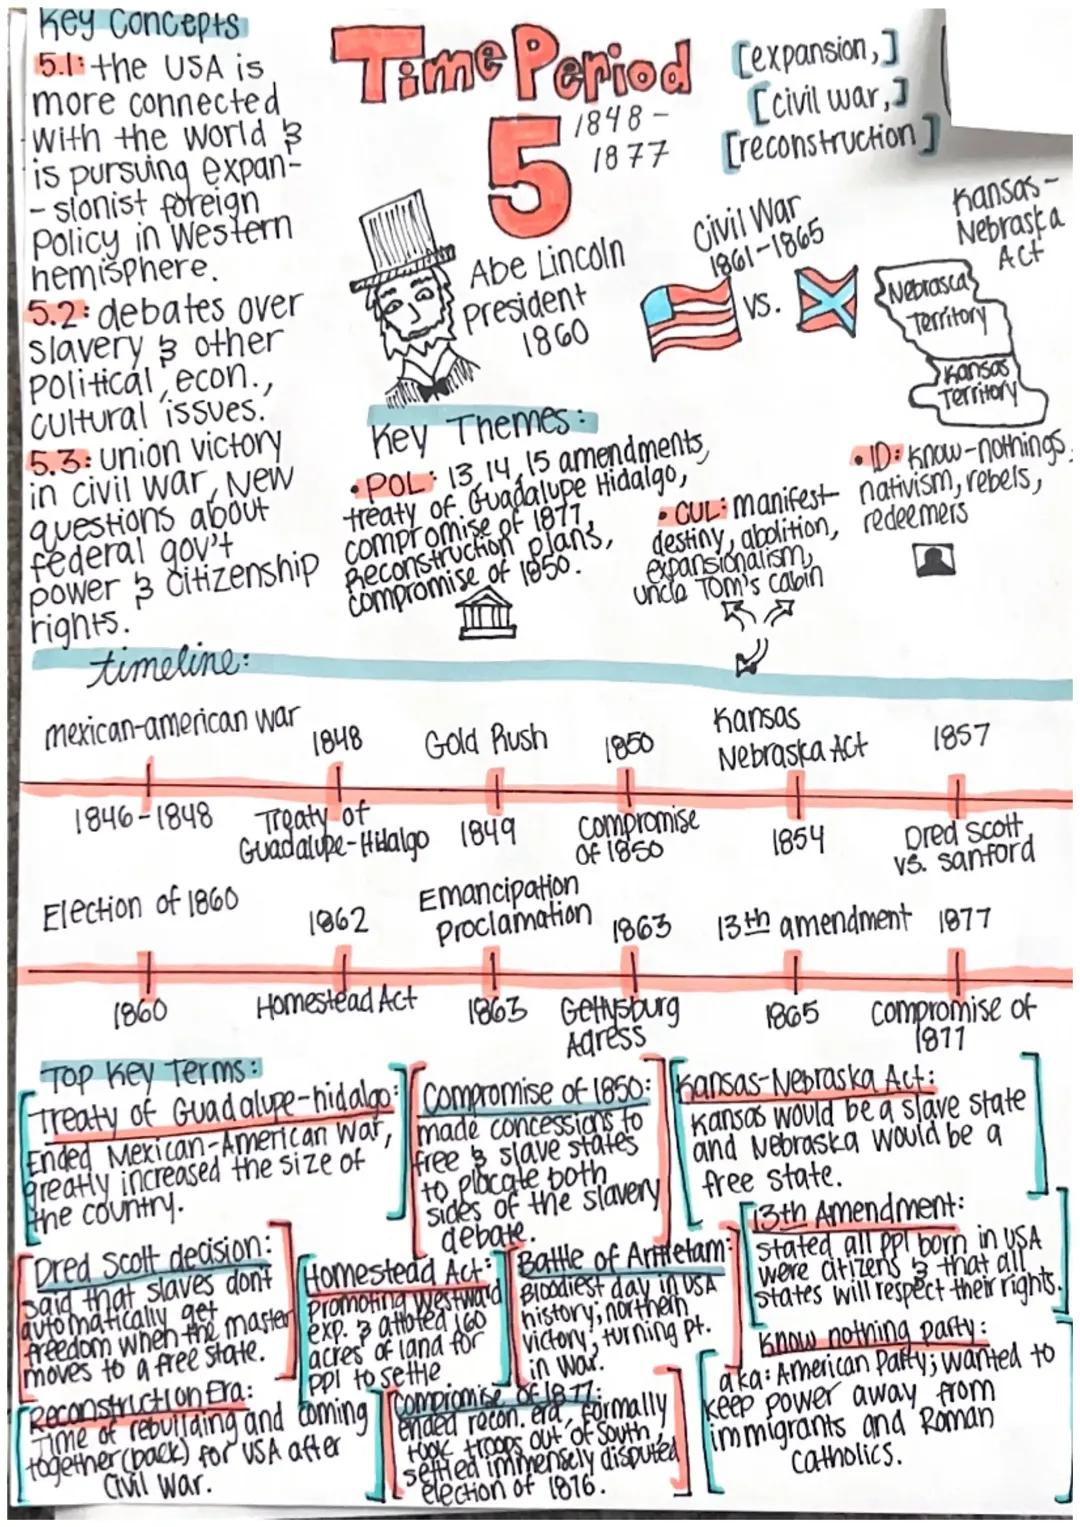 Key Concepts
5.1: the USA is
more connected
with the world &
is pursuing expan-
- sionist foreign
Policy in Western
hemisphere.
5.2: debates over
slavery & other
political, econ.,
cultural issues.
5.3: union victory
in civil war, New
questions about
federal gov't
power & citizenship
rights.
Time Period
5
1848 -
1877
[expansion,]
[civil war,]
[reconstruction]
Abe Lincoln
President
1860
Civil War
1861-1865
VS.
Kansas-
Nebraska
Act
Nebrasca
Territory
Kansas
Territory
Key Themes:
• POL: 13, 14, 15 amendments,
treaty of Guadalupe Hidalgo,
compromise of 1877,
Reconstruction plans,
compromise of 1850.
• CUL: manifest
destiny, abolition,
expansionalism,
uncle Tom's cabin
• ID: Know-nothings,
nativism, rebels,
redeemers
timeline:
mexican-american war
1848
Gold Rush
1850
Kansas
Nebraska Act
1857
1846-1848
Treaty of
Guadalupe-Hidalgo
1849
Compromise
of 1850
1854
Dred Scott
vs. sanford
Election of 1860
1862
Emancipation
Proclamation
1863
13th amendment
1877
1860
Homestead Act
1863
Gettysburg
Adress
1865
Compromise of
1877
Top Key Terms:
Treaty of Guadalupe-hidalgo:
Ended Mexican-American War,
greatly increased the size of
the country.
Compromise of 1850:
made concessions to
free & slave states
to placate both
sides of the slavery
debate.
Kansas-Nebraska Act:
Kansas would be a slave state
and Nebraska would be a
free state.
Dred Scott decision:
said that slaves dont
automatically get
freedom when the master
moves to a free state.
Homestead Act:
Promoting westward
exp. & alloted 160
acres of land for
ppl to settle
Battle of Antietam:
Bloodiest day in USA
history; northern
victory; turning pt.
in war.
13th Amendment:
stated all ppl born in USA
were citizens & that all
states will respect their rights.
Reconstruction Era:
Time of rebuilding and coming
together (back) for USA after
Civil War.
Compromise of 1877:
ended recon. era, formally
took troops out of South,
settled immensely disputed
election of 1876.
Know nothing party:
aka: American Party; wanted to
keep power away from
immigrants and Roman
Catholics.